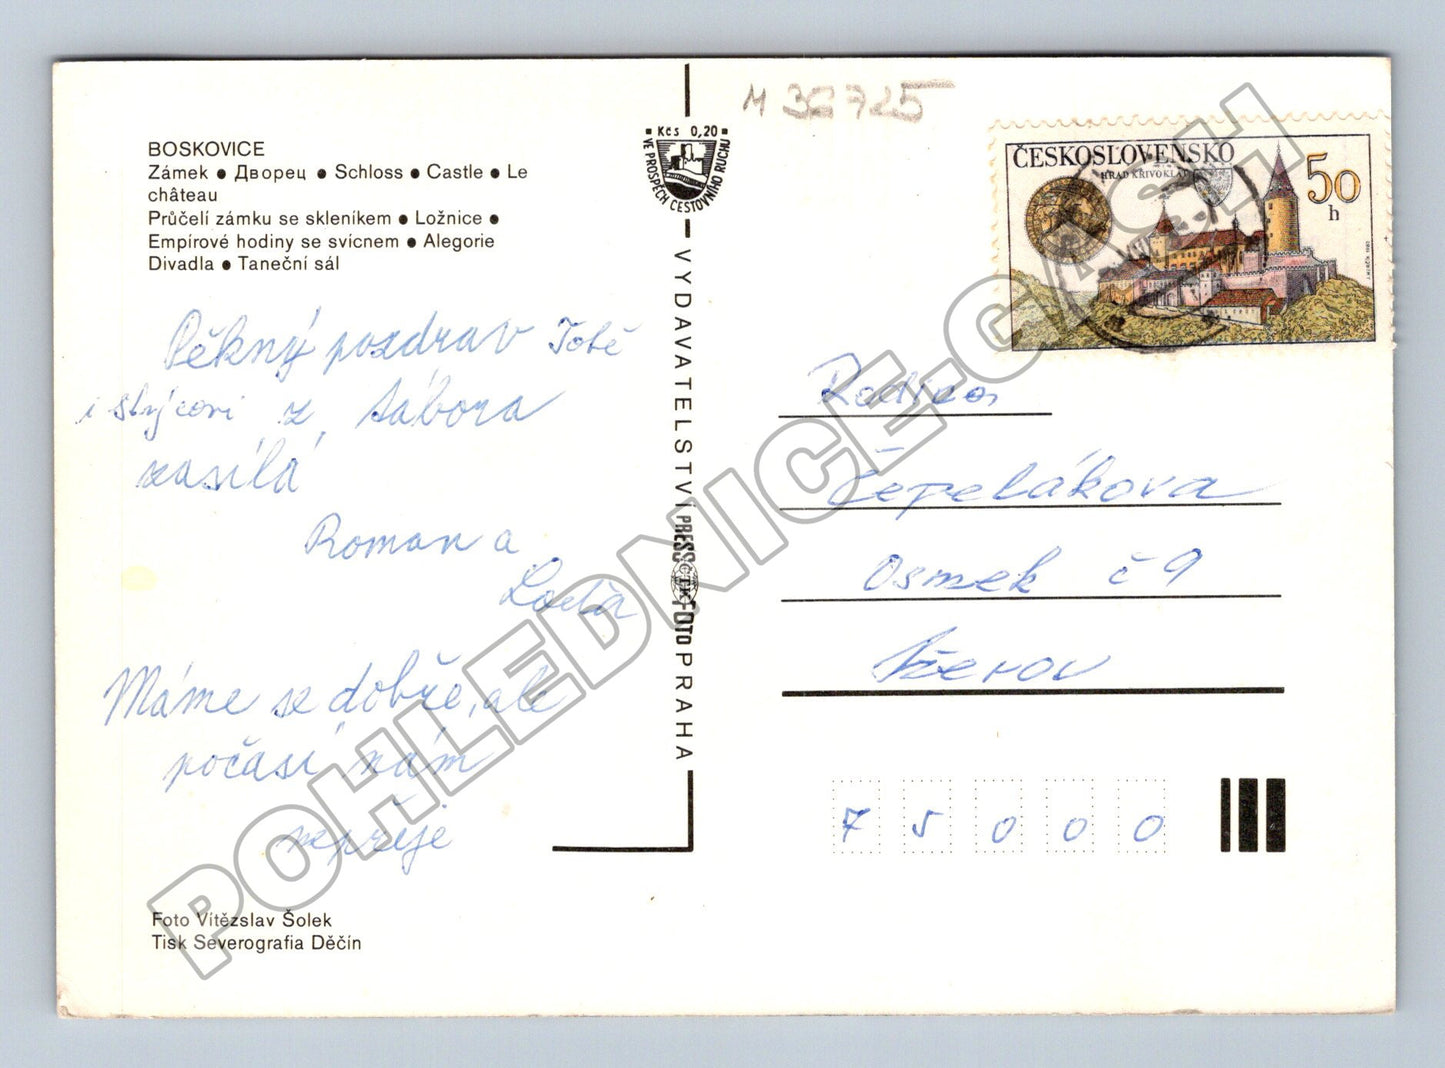 BOSKOVICE
Zámek ● Дворец ● Schloss ● Castle ● Le
château
Průčelí zámku se skleníkem ● Ložnice ●
Empírové hodiny se svícnem ● Alegorie
Divadla ● Taneční sál
Pěkný pozdrav Tobě
i strýcovi z tábora
zasílá
Roman a
Máme se dobře, ale
počasí nám
nepřeje
Foto Vítězslav Šolek
Tisk Severografia Děčín
Kčs 0,20
VE PROSPĚCH CESTOVNÍHO RUCHU
VYDAVATELSTVÍ PRESSFOTO PRAHA
M 36725
ČESKOSLOVENSKO
HRAD KŘIVOKLÁT
50
h
Rodina
Čepelákova
Osmek č 9
Přerov
75000
POHLEDNICE-CASH